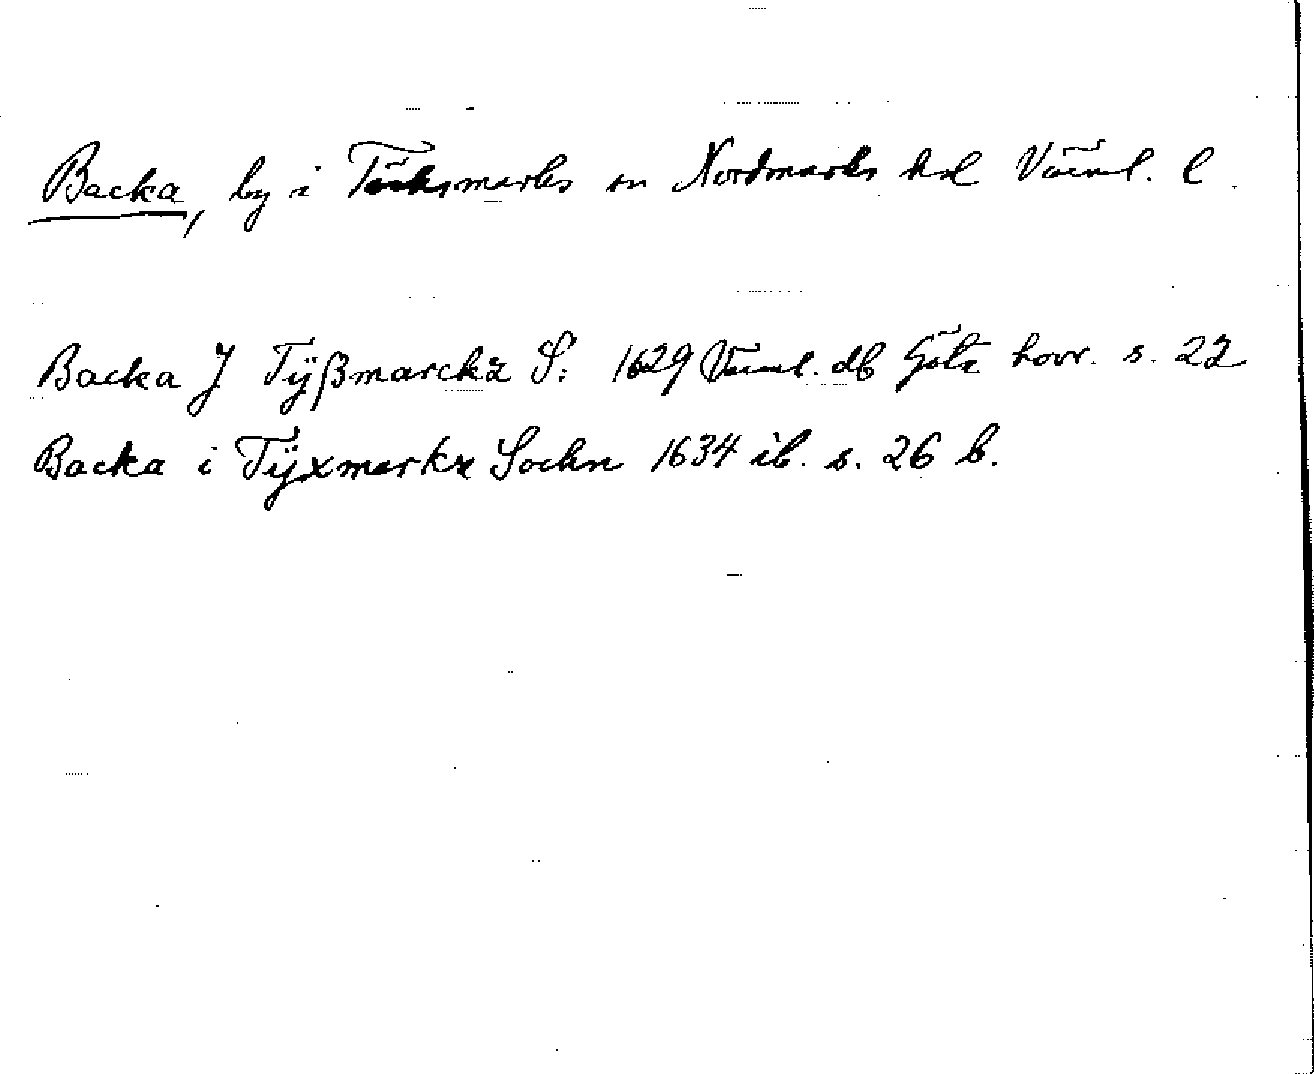 Backa, by i Töcksmarks sn Nordmarks hd Värml. l.
Backa J Tÿßmarckz S: 1629 Värml. db Göta hovr. s. 22
Backa i Tÿxmarkz Sochn 1634 ib. s. 26 b.